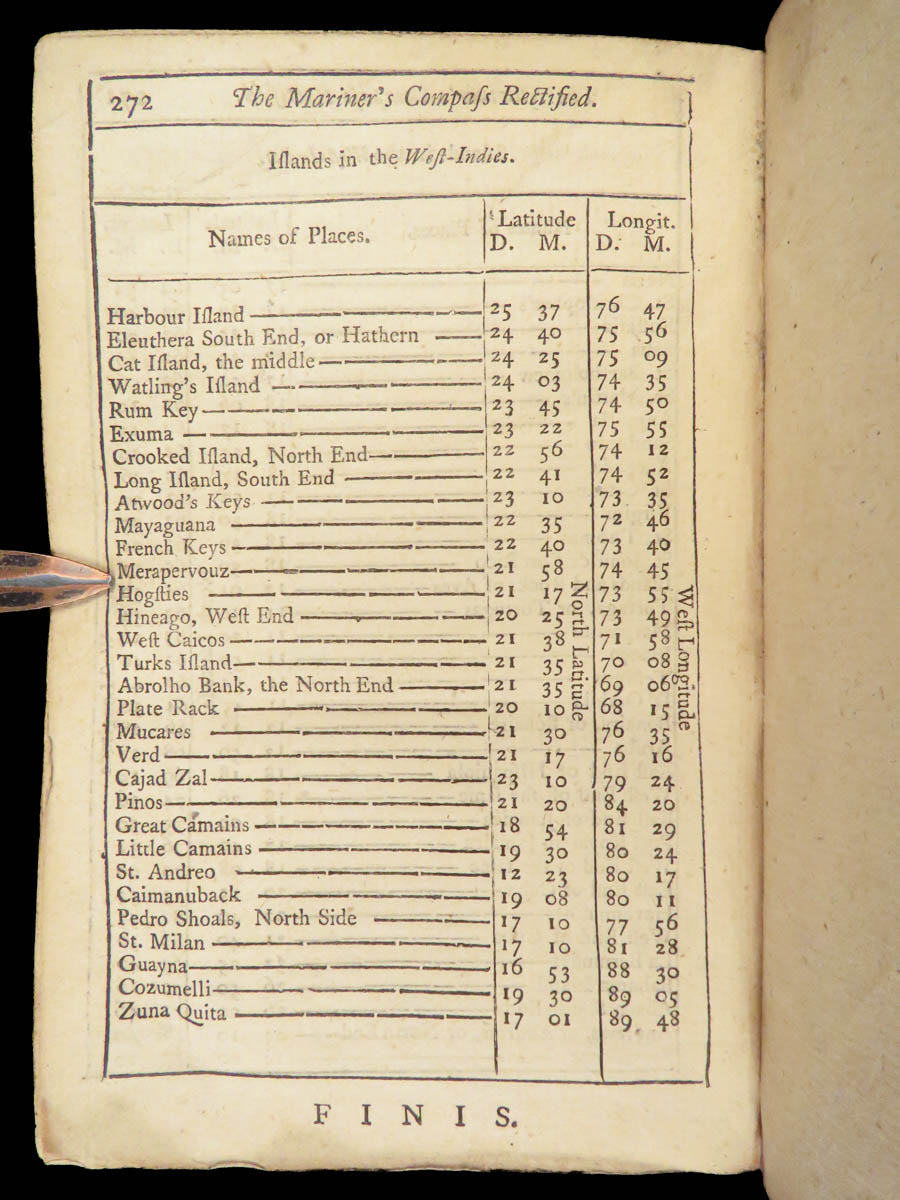 272 The Mariner's Compaſs Rectified.
Iſlands in the Weſt-Indies.
Names of Places. Latitude Longit.
D. M. D. M.
Harbour Iſland 25 37 76 47
Eleuthera South End, or Hathern 24 40 75 56
Cat Iſland, the middle 24 25 75 09
Watling's Iſland 24 03 74 35
Rum Key 23 45 74 50
Exuma 23 22 75 55
Crooked Iſland, North End 22 56 74 12
Long Iſland, South End 22 41 74 52
Atwood's Keys 23 10 73 35
Mayaguana 22 35 72 46
French Keys 22 40 73 40
Merapervouz 21 58 74 45
Hogſties 21 17 73 55
Hineago, Weſt End 20 25 73 49
Weſt Caicos 21 38 71 58
Turks Iſland 21 35 70 08
Abrolho Bank, the North End 21 35 69 06
Plate Rack 20 10 68 15
Mucares 21 30 76 35
Verd 21 17 76 16
Cajad Zal 23 10 79 24
Pinos 21 20 84 20
Great Camains 18 54 81 29
Little Camains 19 30 80 24
St. Andreo 12 23 80 17
Caimanuback 19 08 80 11
Pedro Shoals, North Side 17 10 77 56
St. Milan 17 10 81 28
Guayna 16 53 88 30
Cozumelli 19 30 89 05
Zuna Quita 17 01 89 48
North Latitude
Weſt Longitude
FINIS.